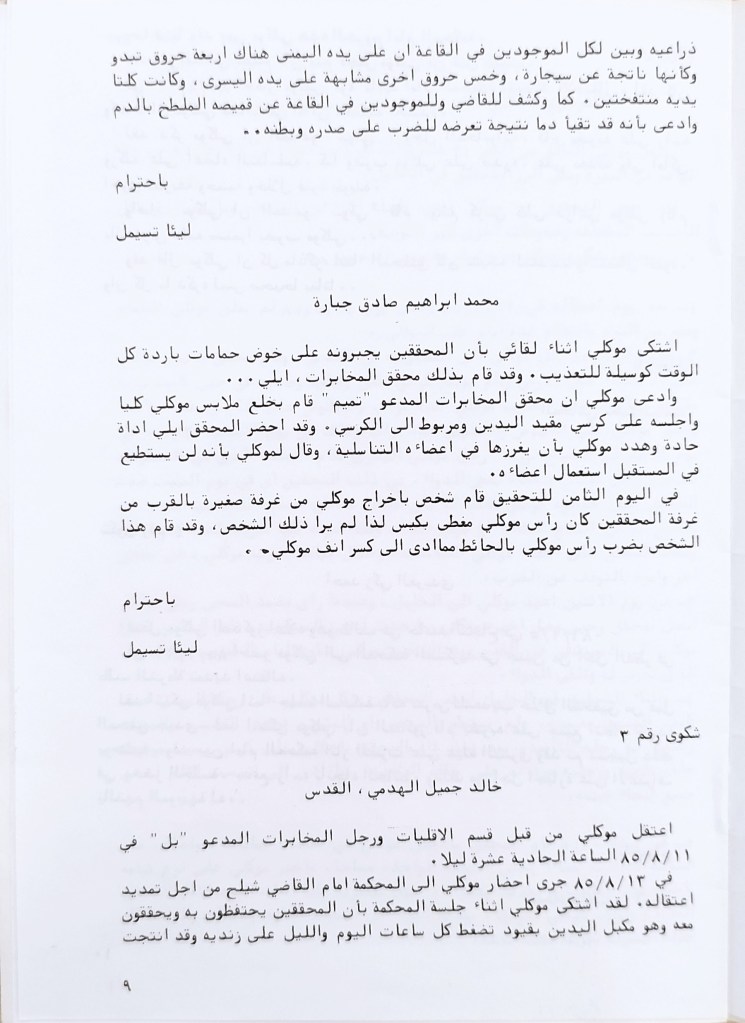 ذراعيه وبين لكل الموجودين في القاعة ان على يده اليمنى هناك اربعة حروق تبدو
وكأنها ناتجة عن سيجارة، وخمس حروق اخرى مشابهة على يده اليسرى، وكانت كلتا
يديه منتفختين. كما وكشف للقاضي وللموجودين في القاعة عن قميصه الملطخ بالدم
وادعى بأنه قد تقيأ دما نتيجة تعرضه للضرب على صدره وبطنه..
باحترام
ليئا تسيمل
محمد ابراهيم صادق جبارة
اشتكى موكلي اثناء لقائي بأن المحققين يجبرونه على خوض حمامات باردة كل
الوقت كوسيلة للتعذيب. وقد قام بذلك محقق المخابرات، ايلي...
وادعى موكلي ان محقق المخابرات المدعو "تميم" قام بخلع ملابس موكلي كليا
واجلسه على كرسي مقيد اليدين ومربوط الى الكرسي. وقد احضر المحقق ايلي اداة
حادة وهدد موكلي بأن يغرزها في اعضاءه التناسلية، وقال لموكلي بأنه لن يستطيع
في المستقبل استعمال اعضاءه.
في اليوم الثامن للتحقيق قام شخص باخراج موكلي من غرفة صغيرة بالقرب من
غرفة المحققين كان رأس موكلي مغطى بكيس لذا لم يرا ذلك الشخص، وقد قام هذا
الشخص بضرب رأس موكلي بالحائط مماادى الى كسر انف موكلي..
باحترام
ليئا تسيمل
شكوى رقم ٣
خالد جميل الهدمي، القدس
اعتقل موكلي من قبل قسم الاقليات ورجل المخابرات المدعو "بل" في
٨٥/٨/١١ الساعة الحادية عشرة ليلا.
في ٨٥/٨/١٣ جرى احضار موكلي الى المحكمة امام القاضي شيلح من اجل تمديد
اعتقاله. لقد اشتكى موكلي اثناء جلسة المحكمة بأن المحققين يحتفظون به ويحققون
معه وهو مكبل اليدين بقيود تضغط كل ساعات اليوم والليل على زنديه وقد انتجت
٩